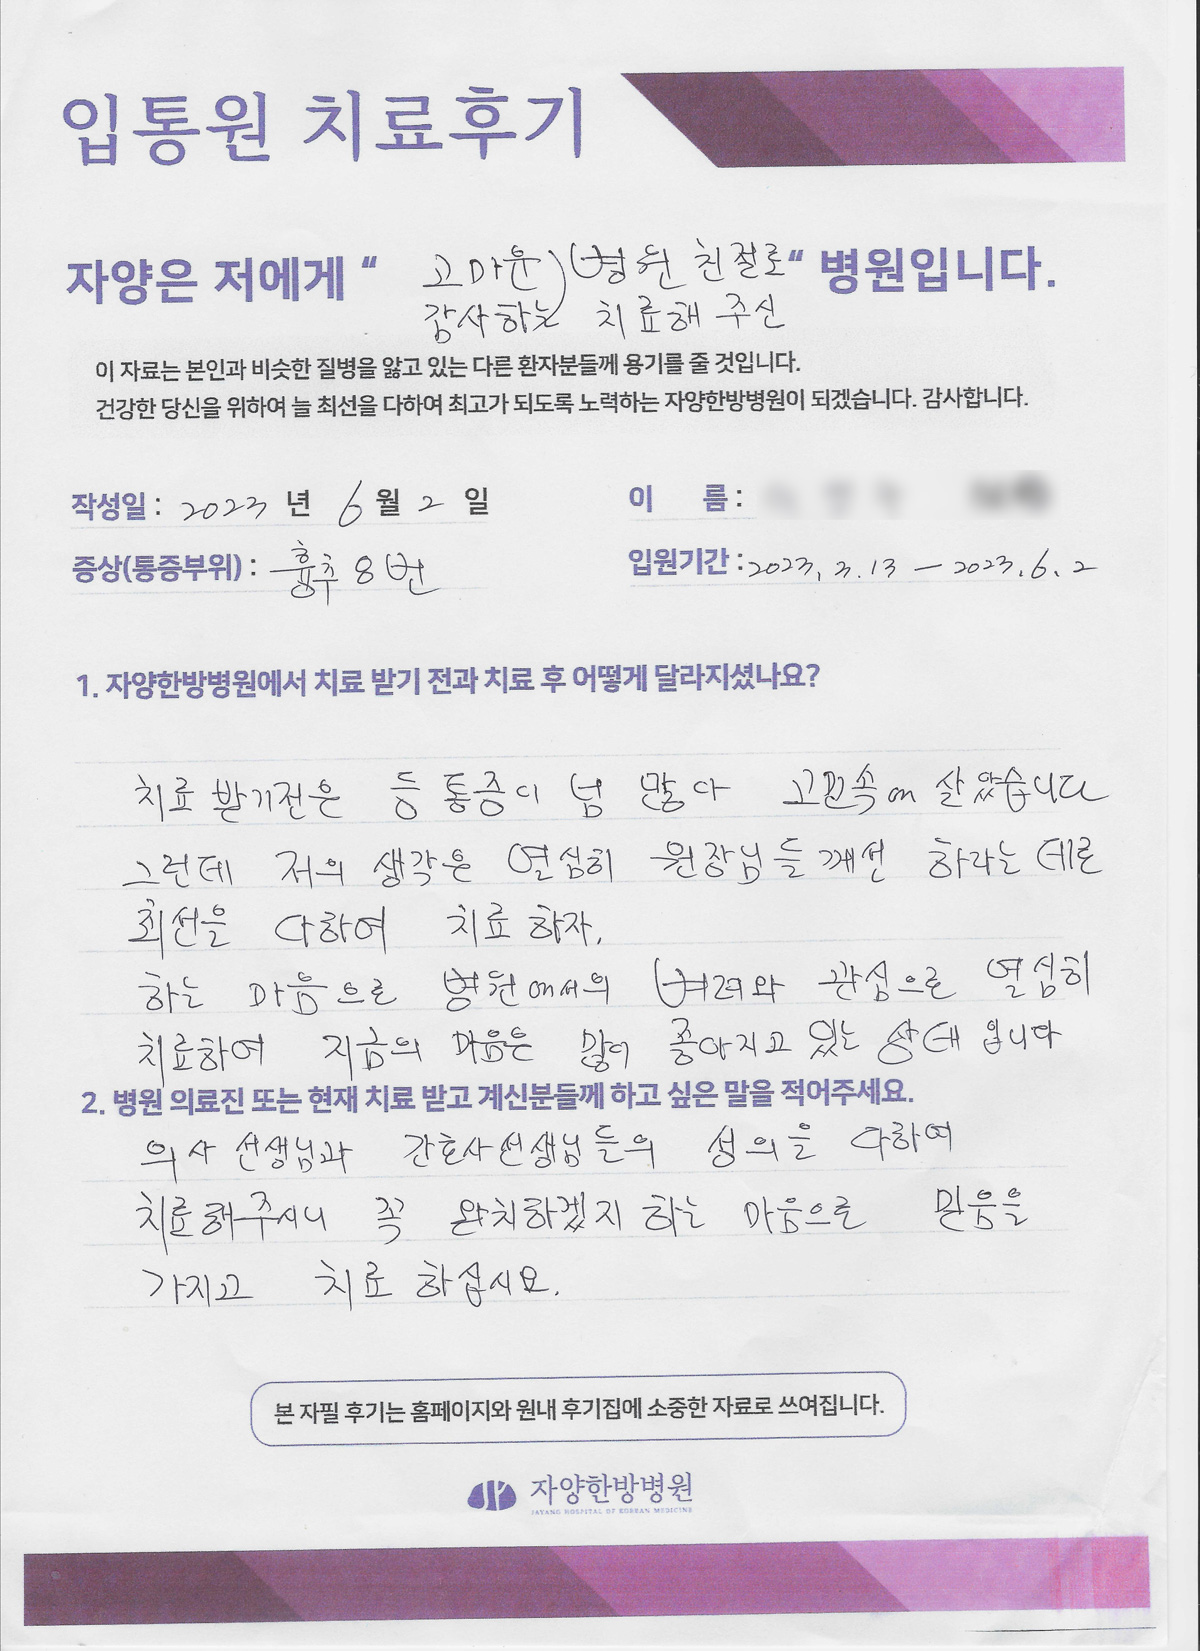 입통원 치료후기
자양은 저에게 “ 고마운) 병원 친절로 “ 병원입니다.
감사하는 치료해 주신
이 자료는 본인과 비슷한 질병을 앓고 있는 다른 환자분들께 용기를 줄 것입니다.
건강한 당신을 위하여 늘 최선을 다하여 최고가 되도록 노력하는 자양한방병원이 되겠습니다. 감사합니다.
작성일 : 2023 년 6 월 2 일
이 름 :
증상(통증부위) : 흉추 8번
입원기간 : 2023. 3. 13 - 2023. 6. 2
1. 자양한방병원에서 치료 받기 전과 치료 후 어떻게 달라지셨나요?
치료 받기전은 등 통증이 넘 많다 고 속에 살았습니다
그런데 저의 생각은 열심히 원장님들께선 하라는 데로
최선을 다하여 치료 하자.
하는 마음으로 병원에서의 와 관심으로 열심히
치료하여 지금의 마음은 많이 좋아지고 있는 상태 입니다
2. 병원 의료진 또는 현재 치료 받고 계신분들께 하고 싶은 말을 적어주세요.
의사 선생님과 간호사선생님들의 성의을 다하여
치료해주시니 꼭 완치하겠지 하는 마음으로 믿음을
가지고 치료 하십시요.
본 자필 후기는 홈페이지와 원내 후기집에 소중한 자료로 쓰여집니다.
자양한방병원
JAYANG HOSPITAL OF KOREAN MEDICINE